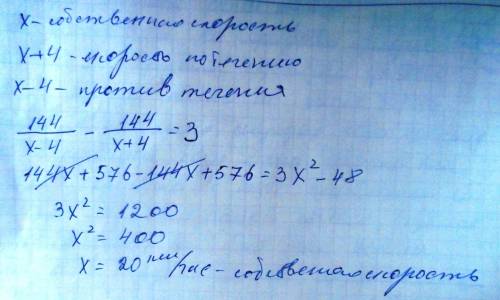 x – собственная скорость
x+4 – скорость по течению
x–4 – против течения
144/(x-4) - 144/(x+4) = 3
144x + 576 - 144x + 576 = 3x² - 48
3x² = 1200
x² = 400
x = 20 км/час – собственная скорость